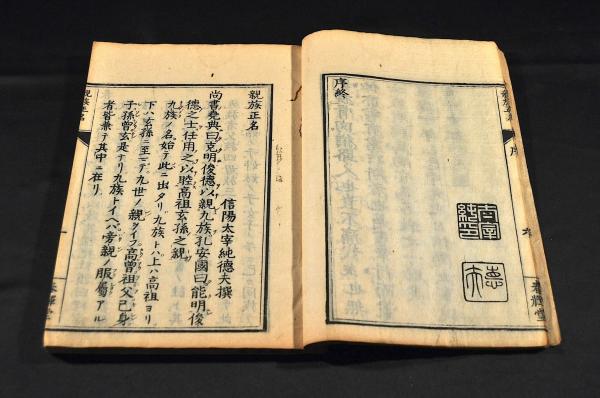 序終
親族正名
序
親族正名
信陽太宰純德夫撰
尚書堯典曰克明俊德以親九族孔安國曰能明俊
德之士任用之以睦高祖玄孫之親
九族ノ名始テ此ニ出タリ九族トハ上ハ高祖ヨリ
下ハ玄孫ニ至ニテ九世ノ親ヲイフ高曾祖父己身
子孫曾玄是ナリ九族トイヘハ旁親ノ服屬アル
者皆兼テ其中ニ在リ
親族正名